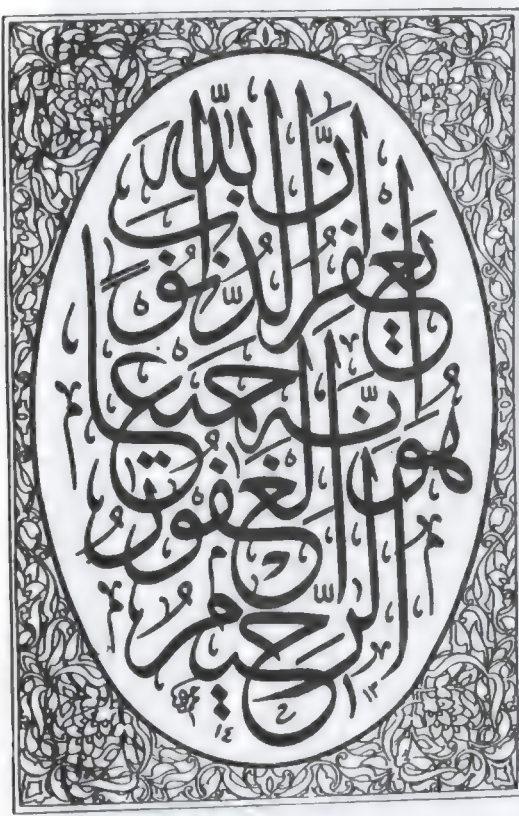 إِنَّ اللَّهَ
يَغْفِرُ الذُّنُوبَ
جَمِيعًا إِنَّهُ هُوَ
الْغَفُورُ
الرَّحِيمُ